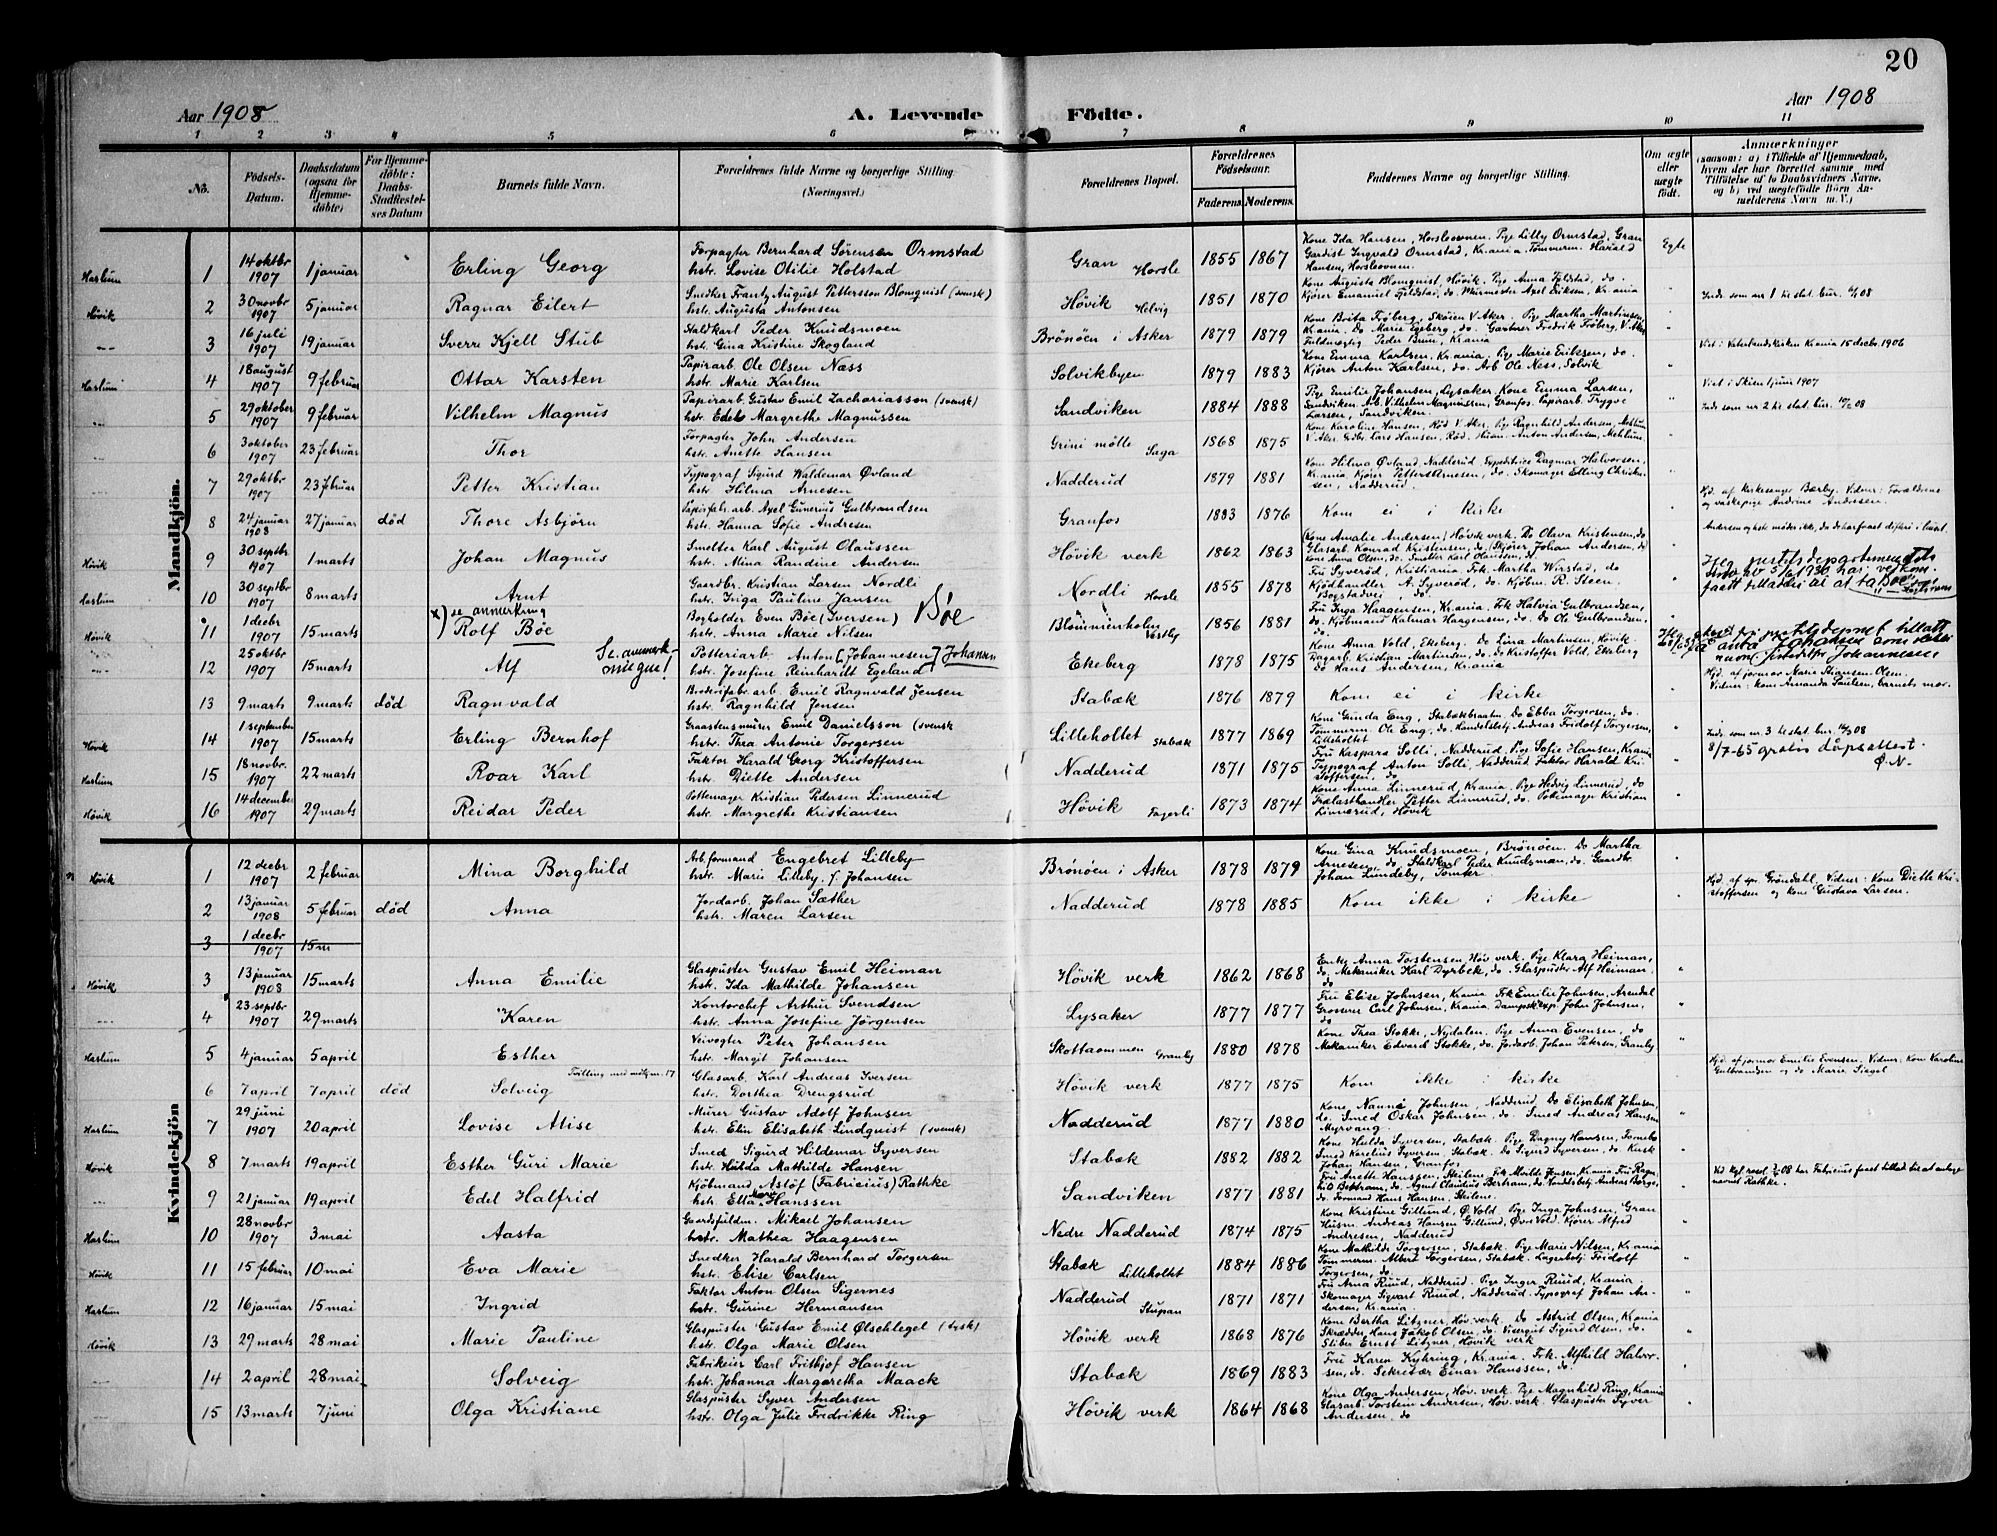 20
Aar 1908
A. Levende Födte.
Aar 1908
1 2 3 4 5 6 7 8 9 10 11
No.
Födsels-Datum.
Daabsdatum (ogsaa for Hjemme-döbte)
For Hjemme-döbte: Daabs-Stadfæstel-ses Datum
Barnets fulde Navn.
Forældrenes fulde Navne og borgerlige Stilling. (Næringsvei.)
Forældrenes Bopæl.
Forældrenes Födselsaar.
Faderens. Moderens.
Faddernes Navne og borgerlige Stilling.
Om ægte eller uægte födt.
Anmærkninger
(saasom: a) i Tilfælde af Hjemmedaab, hvem der har forrettet samme, med Tilföielse af to Daabsvidners Navne, og b) ved uægtefödte Börn An-melderens Navn m. V.)
Mandkjön.
Haslum 1 14 oktbr 1907 1 januar Erling Georg Forpagter Bernhard Sörensen Ormstad
hstr. Lovise Otilie Holstad Gran Horsle 1855 1867 Kone Ida Hansen, Horsleovnen. Pige Lilly Ormstad, Gran
Gardist Ingvald Ormstad, Kr.ania Tömmerm. Harald
Hansen, Horsleovnen. Egte
Hövik 2 30 novbr 1907 5 januar Ragnar Eilert Snedker Frantz August Pettersson Blomquist (svensk)
hstr. Augusta Antonsen Hövik Helvig 1851 1870 Kone Augusta Blomquist, Hövik. Pige Anna Fjeldstad, do.
Kjörer Emanuel Fjeldstad, do. Murmester Axel Eriksen, Kr.ania
Inds. som nr 1 til stat. bur.
3 16 juli 1907 19 januar Sverre Kjell Stub Staldkarl Peder Knudsmoen
hstr. Gina Kristine Skogland Brönöen i Asker 1879 1879 Kone Brita Fröberg, Sköien V. Aker. Pige Martha Martinsen,
Kr.ania. Do Marie Egeberg, do. Gartner Fredrik Fröberg, V. Aker
Fuldmægtig Peder Bum, Kr.ania
Viet i Vaterlandskirken Kr.ania 15 decbr. 1906
Haslum 4 18 august 1907 9 februar Ottar Karsten Papirarb. Ole Olsen Næss
hstr. Marie Karlsen Solvikbyen 1879 1883 Kone Emma Karlsen, Kr.ania. Pige Marie Eriksen, do.
Kjörer Anton Karlsen, do. Arb Ole Ness, Solvik
Viet i Skien 1 juni 1907
5 29 oktober 1907 9 februar Vilhelm Magnus Papirarb. Gustav Emil Zachariasson (svensk)
hstr. Edel Margrethe Magnussen Sandviken 1884 1888 Pige Emilie Johansen, Lysaker. Kone Emma Larsen,
Sandviken. Arb. Vilhelm Magnussen, Granfos. Papirarb. Trygve
Larsen, Sandviken.
Inds. som nr 2 til stat. bur.
6 3 oktober 1907 23 februar Thor Forpagter John Andersen
hstr. Anette Hansen Grini mölle Saga 1868 1875 Kone Karoline Hansen, Röd V. Aker. Pige Ragnhild Andersen,
V. Aker. Gdbr. Lars Hansen, Röd. Anton Andersen,
7 29 oktbr 1907 23 februar Petter Kristian Typograf Sigurd Waldemar Övland
hstr. Hilma Arnesen Nadderud 1879 1881 Kone Hilma Övland, Nadderud. Expeditrice Dagmar Halvorsen,
Kr.ania, Kjörer Petter Arnesen, do. Skomager Elling Christen-
sen, Nadderud.
8 24 januar 1908 27 januar död Thore Asbjörn Papirfab. arb. Axel Gunerius Gulbrandsen
hstr. Hanna Sofie Andresen Granfos 1883 1876 Kom ei i kirke
Hjd. af Kirkesanger Bærby. Vidner: Forældrene
og vaskepige Andrine Andresen.
Hövik 9 30 septbr 1907 1 marts Johan Magnus Smelter Karl August Olaussen
hstr. Mina Randine Andersen Hövik verk 1862 1863 Kone Amalie Andersen, Hövik verk. Do Olava Kristensen, do
Glasarb. Konrad Kristensen, do. Skjörer Johan Andersen, do
Kone Anna Olsen, do. Smelter Karl Olaussen, do.
Haslum 10 30 septbr 1907 8 marts Arnt Gaardbr. Kristian Larsen Nordli
hstr. Inga Pauline Jansen Nordli Horsle 1855 1878 Fru Syveröd, Kristiania. Frk. Martha Wirstad, do
Kjödhandler A. Syveröd, do. Kjöbm. R. Steen,
Bogstadvei, do.
Hövik 11 1 decbr 1907 15 marts x) se anmerkning
Rolf Böe Bogholder Even Böe (Iversen) Böe
hstr. Anna Marie Nilsen Blommenholm Vestby 1856 1881 Fru Inga Haagensen, Kr.ania, Frk Halvia Gulbrandsen,
do. Kjöbmand Kalmar Haagensen, do. Do Ole Gulbrandsen,
do.
12 25 oktbr 1907 15 marts Alf Se anmerk-
Potteriarb. Anton (Johannesen) Johansen
hstr. Josefine Reinhardt Egeland Ekeberg 1878 1875 Kone Anna Vold, Ekeberg. Do Lina Martinsen, Hövik.
Dagarb. Kristian Martinsen, do. Do Kristoffer Vold, Ekeberg
Do Hans Andersen, Kr.ania
13 9 marts 9 marts död Ragnvald Broderifabr. arb. Emil Ragnvald Jensen
hstr. Ragnhild Jensen Stabæk 1876 1879 Kom ei i kirke
Hjd. af jormor Marie Stiansen-Olsen.
Vidner: kone Amanda Paulsen, barnets mor.
Hövik 14 1 september 1907 15 marts Erling Bernhof Graastensmurer Emil Danielsson (svensk
hstr. Thea Antonie Torgersen Lilleholtet Stabæk 1877 1869 Kone Gunda Eng, Stabækbraaten. Do Ebba Torgersen, do.
Tömmerm. Ole Eng, do. Handelsbetj. Andreas Fridolf Torgersen,
Lilleholtet
Inds. som nr. 3 til stat. bur.
8/7-65 gratis dåpsattest.
Ö.N-
Haslum 15 18 novbr. 1907 22 marts Roar Karl Faktor Harald Georg Kristoffersen
hstr. Diette Andersen Nadderud 1871 1875 Fru Kaspara Solli, Nadderud. Pige Sofie Hansen, Kr.ania
Typograf Anton Solli, Nadderud. Faktor Harald Kri-
stoffersen, do
Hövik 16 14 december 1907 29 marts Reidar Peder Pottemager Kristian Pedersen Linnerud
hstr. Margrethe Kristiansen Hövik Fagerli 1873 1874 Kone Anna Linnerud, Kr.ania. Pige Hedvig Linnerud, do
Trælasthandler Petter Linnerud, do. Pottemager Kristian
Linnerud, Hövik
Kvindekjön
Hövik 1 12 decbr 1907 2 februar Mina Borghild Arb. formand Engebret Lilleby
hstr. Marie Lilleby f. Johansen Brönöen i Asker 1878 1879 Kone Gina Knudsmoen, Brönöen. Do Martha
Arnesen, do. Staldkarl Peder Knudsmoen, do. Gaardbr.
Johan Lundeby, Tomter
2 13 januar 1908 5 februar död Anna Jordarb. Johan Sæther
hstr. Maren Larsen Nadderud 1878 1885 Kom ikke i kirke
Hjd. af spr. Gröndahl. Vidner: Kone Diette Kri-
stoffersen og kone Gustava Larsen.
3 1 decbr 1907 15 m
Hövik 3 13 januar 1908 15 marts Anna Emilie Glaspuster Gustav Emil Heiman
hstr. Ida Mathilde Johansen Hövik verk 1862 1868 Enke Anna Torstensen, Höv. verk. Pige Klara Heiman,
do. Mekaniker Karl Dyrbek, do. Glaspuster Alf Heiman,
do
4 23 septbr 1907 29 marts Karen Kontorchef Arthur Svendsen
hstr. Anna Josefine Jörgensen Lysaker 1877 1877 Fru Elise Johnsen, Kr.ania Frk Emilie Johnsen, Arendal
Grosserer Carl Johnsen, Kr.ania Dampskexp. John Johnsen,
do
Haslum 5 4 januar 5 april Esther Veivogter Peter Johansen
hstr. Margit Johansen Skottaommen Granby 1880 1878 Kone Thea Stokke, Nydalen. Pige Anna Evensen, do
Mekaniker Edvard Stokke, do. Jordarb. Johan Petersen, Granby
6 7 april 7 april död Solveig Tvilling med
Glasarb. Karl Andreas Iversen
hstr. Dorthea Drengsrud Hövik verk 1877 1875 Kom ikke i kirke
Hjd. af jormor Emilie Evensen. Vidner: Kone Karoline
Gulbrandsen og do Marie Siegel
Haslum 7 29 juni 1907 20 april Lovise Alise Murer Gustav Adolf Johnsen
hstr. Elin Elisabeth Lindquist (svensk) Nadderud 1877 1880 Kone Nanna Johnsen, Nadderud. Do Elisabeth Johnsen,
do. Smed Oskar Johnsen, do. Smed Andreas Hansen
Myrvang.
Hövik 8 7 marts 19 april Esther Guri Marie Smed Sigurd Hildemar Syversen
hstr. Hulda Mathilde Hansen Stabæk 1882 1882 Kone Hulda Syversen, Stabæk. Pige Dagny Hansen,
Smed Karelius Syversen, Stabæk. Do Sigurd Syversen, do. Kusk
Johan Hansen, Granfos
9 21 januar 19 april Edel Halfrid Kjöbmand Astöf (Fabricius) Rathke
hstr. Etta Marie Hanssen Sandviken 1877 1881
do. Formand Hans Hansen,
Ved kgl. resol. har Fabricius faaet tillad. til at antage
navnet Rathke.
Haslum 10 28 novbr 1907 3 mai Aasta Gaardsfuldm. Mikael Johansen
hstr. Mathea Haagensen Nedre Nadderud 1874 1875 Kone Kristine Gillund, Ö. Vold. Pige Inga Johnsen, Gran
Husm. Andreas Hansen Gillund, Övre Vold. Kjörer Alfred
Andresen, Nadderud
Hövik 11 15 februar 10 mai Eva Marie Snedker Harald Bernhard Torgersen
hstr. Elise Carlsen Stabæk Lilleholtet 1884 1886 Kone Mathilde Torgersen, Stabæk. Pige Marie Nilsen, Kr.ania
Tömmerm. Albert Torgersen, Stabæk. Lagerbetj. Fridolf
Torgersen, do.
Haslum 12 16 januar 15 mai Ingrid Faktor Anton Olsen Sigernes
hstr. Gurine Hermansen Nadderud Stupan 1871 1871 Fru Anna Ruud, Nadderud. Pige Inger Ruud, Kr.ania
Skomager Sigvart Ruud, Nadderud. Typograf Johan An-
dersen, Kr.ania.
Hövik 13 29 marts 28 mai Marie Pauline Glaspuster Gustav Emil Ölschlegel (tysk)
hstr. Olga Marie Olsen Hövik verk 1868 1876 Kone Bertha Litzner, Höv. verk. Do Astrid Olsen, Kr.ania
Skrædder Hans Jakob Olsen, do. Visergut Sigurd Olsen, do.
Sliber Ernst Litzner, Hövik verk
14 2 april 28 mai Solveig Fabrikeier Carl Frithjof Hansen
hstr. Johanna Margaretha Maack Stabæk 1869 1883 Fru Karen Kyhring, Kr.ania. Frk. Alfhild Halvor-
sen, do. Sekretær Einar Hanssen, do.
15 13 marts 7 juni Olga Kristiane Glaspuster Syver Andersen
hstr. Olga Julie Fredrikke Ring Hövik verk 1864 1868 Kone Olga Andersen, Höv. verk. Pige Magnhild Ring, Kr.ania
Glasarb. Torstein Andersen, Höv. verk. Glaspuster Syver
Andersen, do